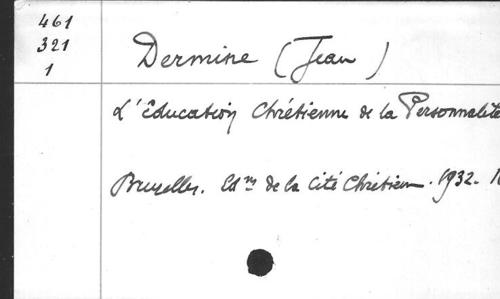 461
321
1
Dermine (Jean)
L'Éducation Chrétienne de la Personnalité
Bruxelles. Edns de la Cité Chrétienne. 1932.